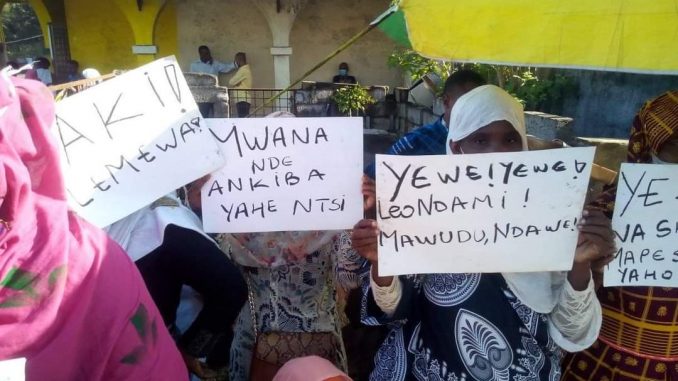 AKI!
LEMEWA?
MWANA
NDE
ANKIBA
YAHE NTSI
YEWE! YEWE!
LEO NDAMI!
MAWUDU, NDAWE!
YE
WA S
MAPES
YAHO